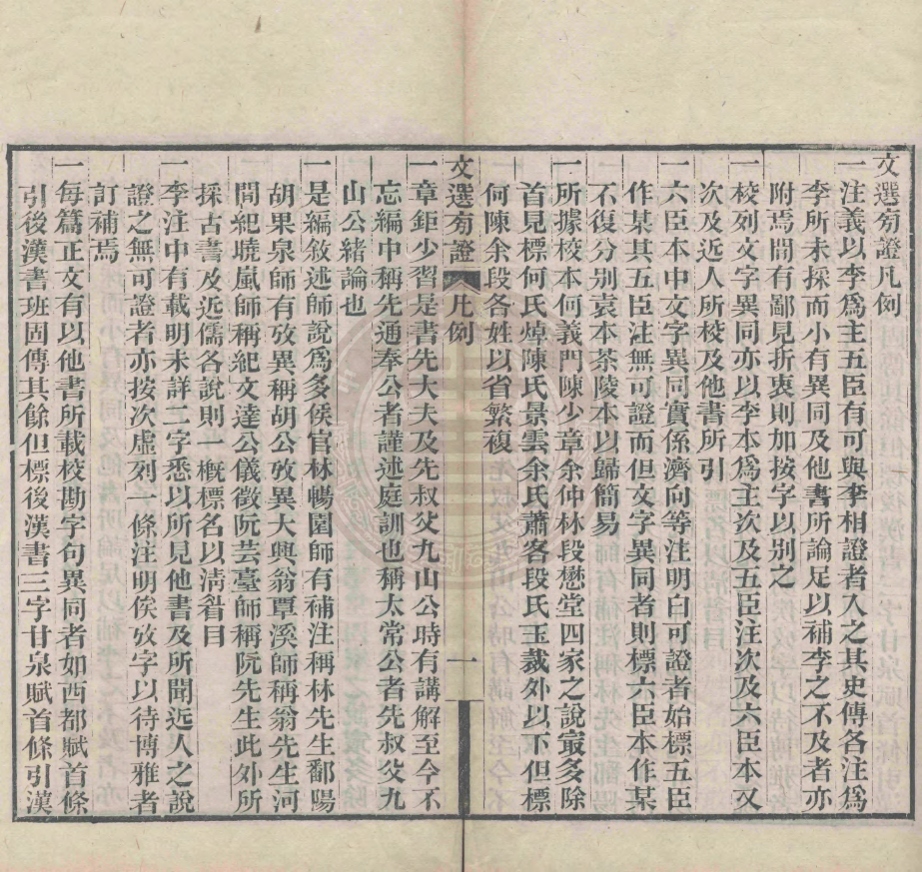 文選旁證凡例
一注義以李爲主五臣有可與李相證者入之其史傳各注爲
李所未採而小有異同及他書所論足以補李之不及者亦
附焉間有鄙見折衷則加按字以别之
一校列文字異同亦以李本爲主次及五臣注次及六臣本又
次及近人所校及他書所引
一六臣本中文字異同實係濟向等注明白可證者始標五臣
作某其五臣注無可證而但文字異同者則標六臣本作某
不復分别袁本茶陵本以歸簡易
一所據校本何義門陳少章余仲林段懋堂四家之說㝡多除
首見標何氏焯陳氏景雲余氏蕭客段氏玉裁外以下但標
何陳余段各姓以省繁複
文選旁證
凡例
一
一章鉅少習是書先大夫及先叔父九山公時有講解至今不
忘編中稱先通奉公者謹述庭訓也稱太常公者先叔父九
山公緒論也
一是編敘述師說爲多侯官林暢園師有補注稱林先生鄱陽
胡果泉師有攷異稱胡公攷異大興翁覃溪師稱翁先生河
間紀曉嵐師稱紀文達公儀徵阮芸臺師稱阮先生此外所
採古書及近儒各說則一概標名以淸眉目
一李注中有載明未詳二字悉以所見他書及所聞近人之說
證之無可證者亦按次虛列一條注明俟攷字以待博雅者
訂補焉
一每篇正文有以他書所載校勘字句異同者如西都賦首條
引後漢書班固傳其餘但標後漢書三字甘泉賦首條引漢